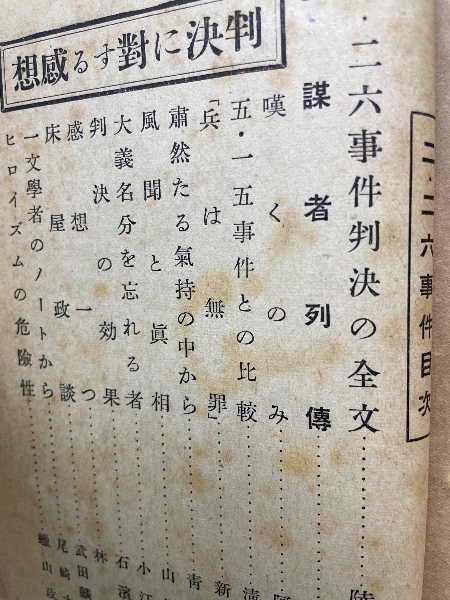 二・二六事件目次
・二六事件判決の全文……陸
謀者列傳
判決に對する感想
嘆くのみ……
五・一五事件との比較……淸
「兵は無罪」……新
肅然たる氣持の中から……靑
風聞と眞相……山
大義名分を忘れる者……小江
判決の効果……石濱
感想一つ……林
床屋政談……武田
一文學者のノートから……尾崎
ヒロイズムの危險性……山政